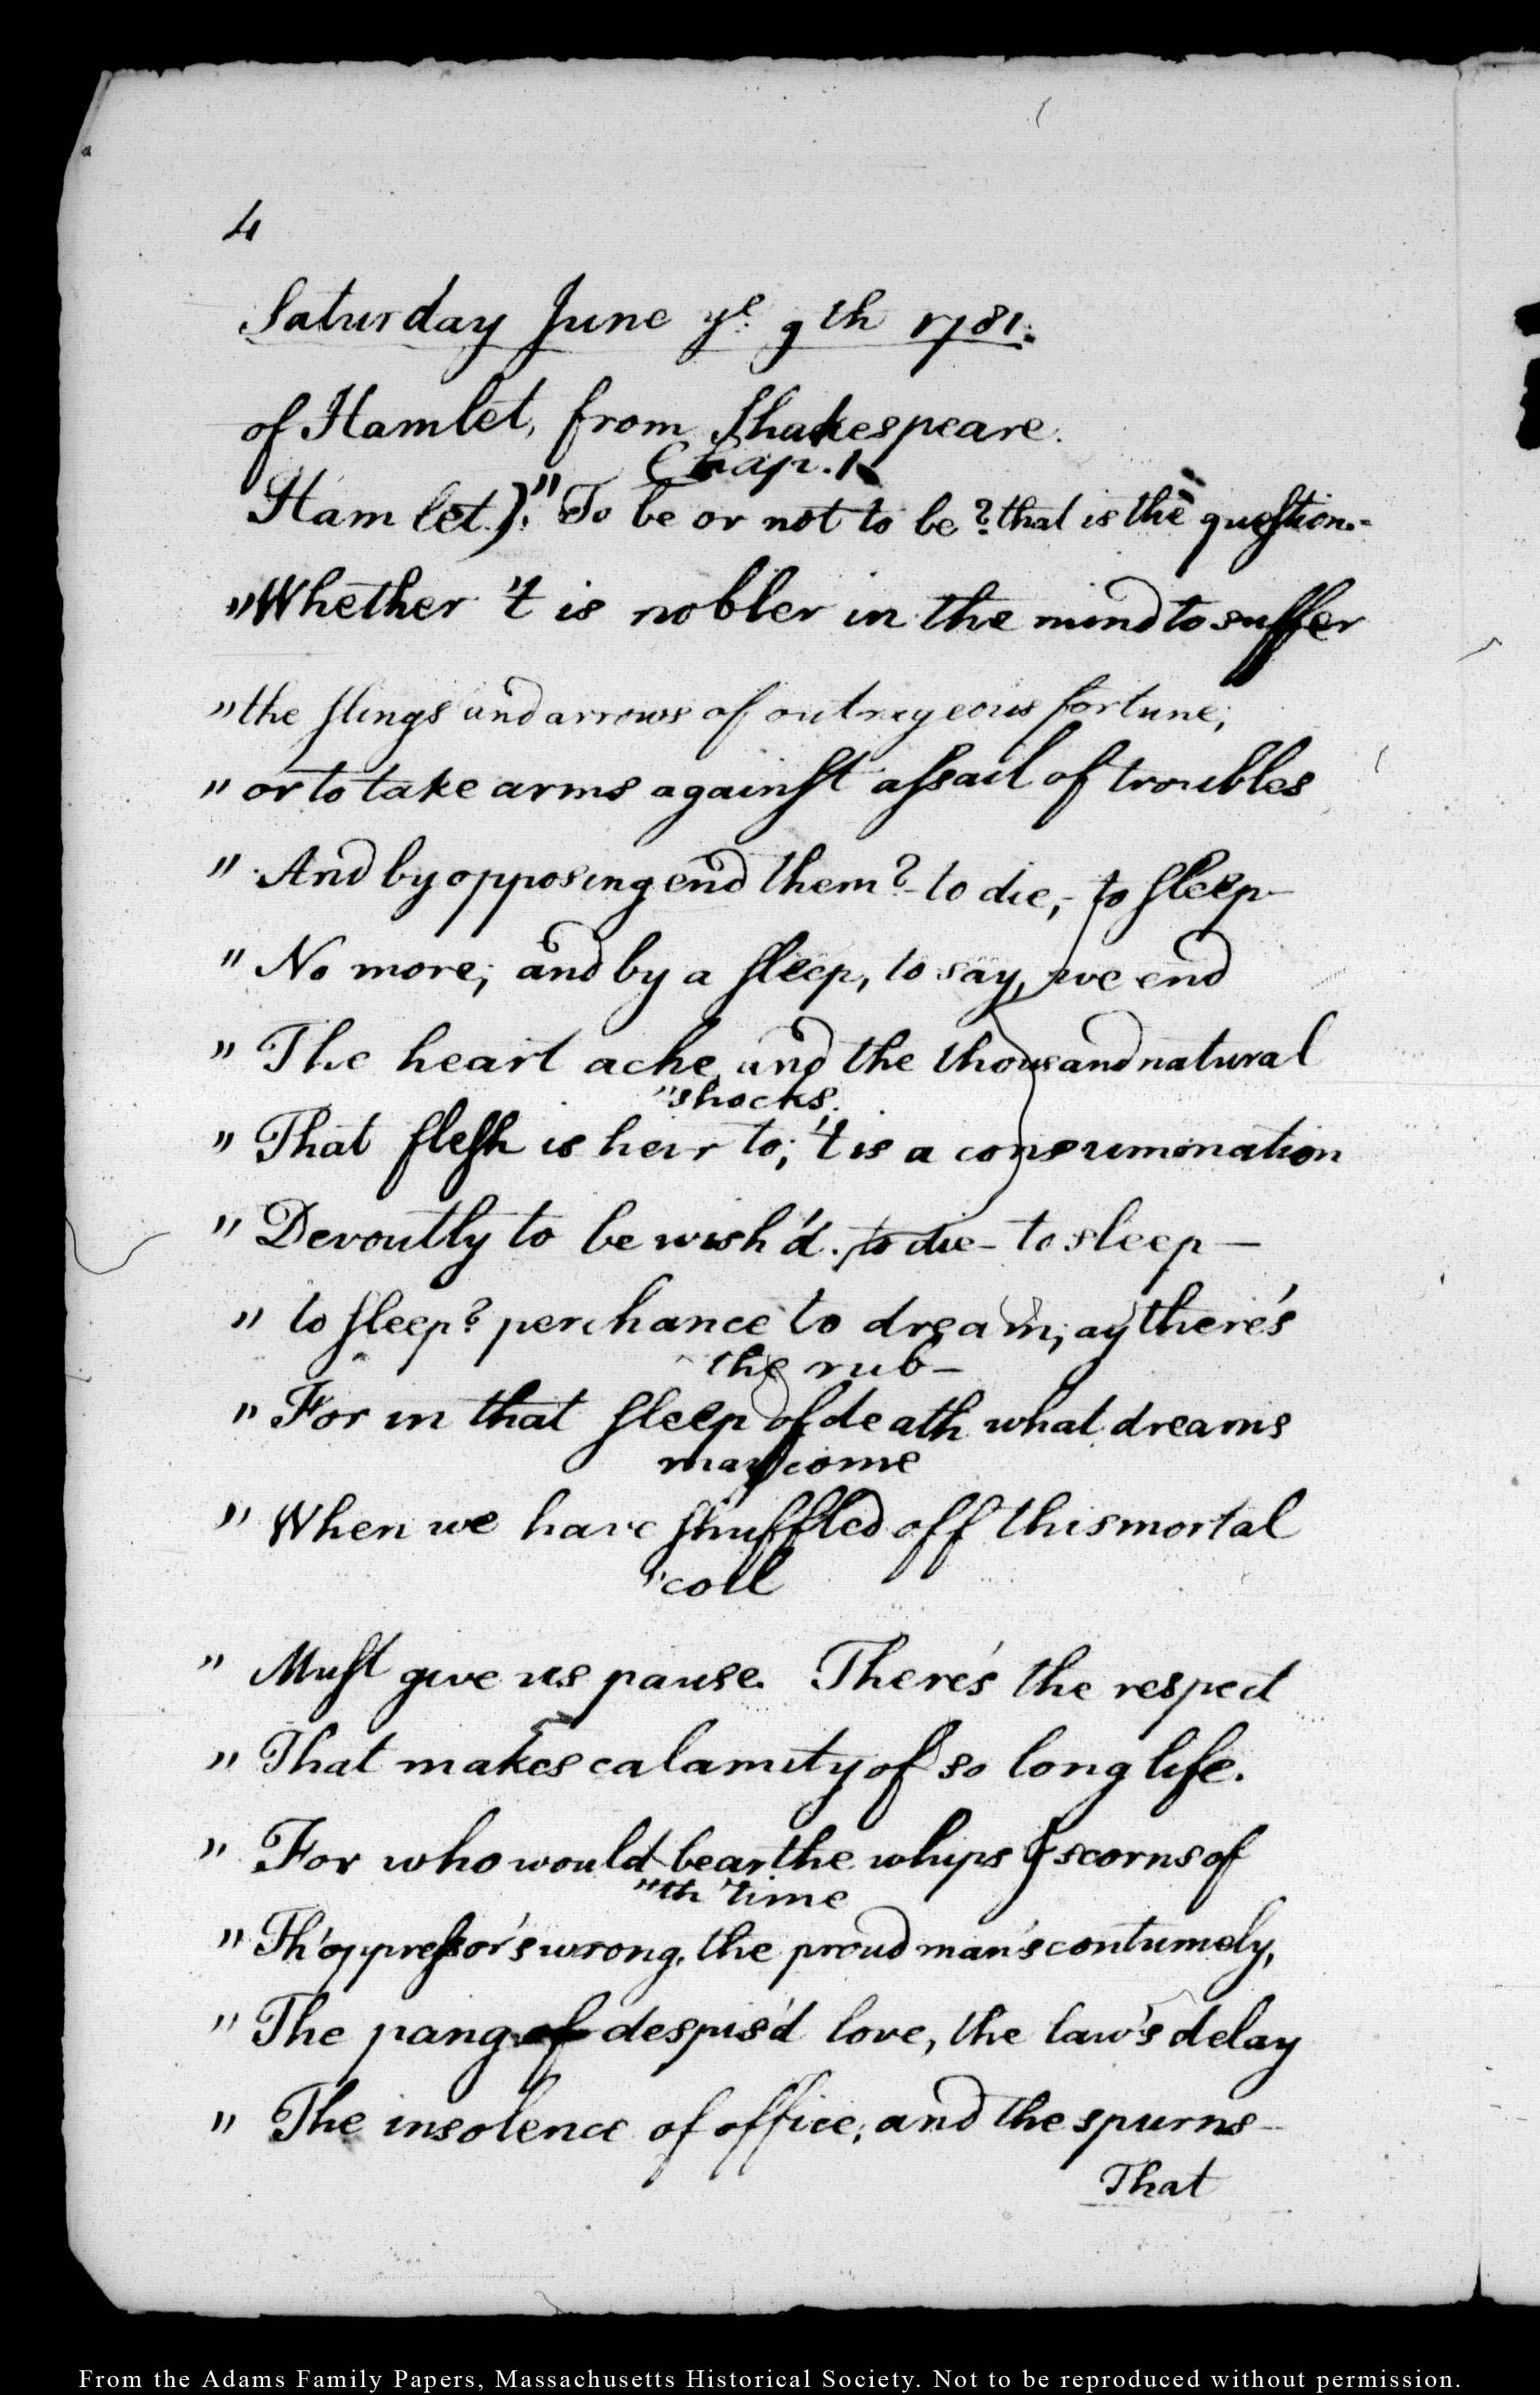 4
Saturday June ye. 9th 1781.
of Hamlet, from Shakespeare.
Chap. 1.
Hamlet.}." To be or not to be? that is the question.-
"Whether 't is nobler in the mind to suffer
"the slings and arrows of outrageous fortune;
" or to take arms against assail of troubles
" And by opposing end them?- to die,- to sleep-
" No more; and by a sleep, to say, we end
" The heart ache, and the thousand natural
"shocks.
" That flesh is heir to; 't is a consummation
" Devoutly to be wish'd. to die- to sleep-
" to sleep? perchance to dream; ay there's
the rub-
" For in that sleep of death what dreams
may come
" When we have shuffled off this mortal
"coil
" Must give us pause. There's the respect
" That makes calamity of so long life.
" For who would bear the whips & scorns of
"th' time
" Th'oppressor's wrong, the proud man's contumely,
" The pang of despis'd love, the law's delay
" The insolence of office; and the spurns-
That
From the Adams Family Papers, Massachusetts Historical Society. Not to be reproduced without permission.